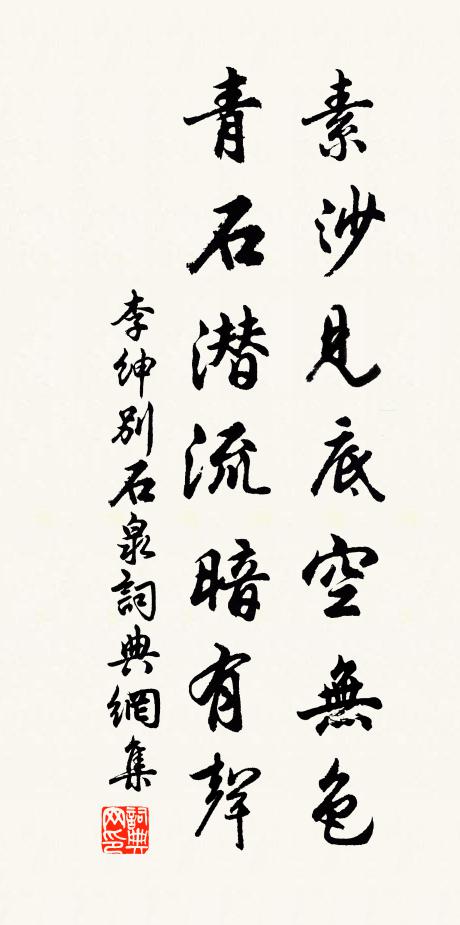 素沙見底空無色
青石潜流暗有聲
李紳別石泉詞典網集
詞典网印